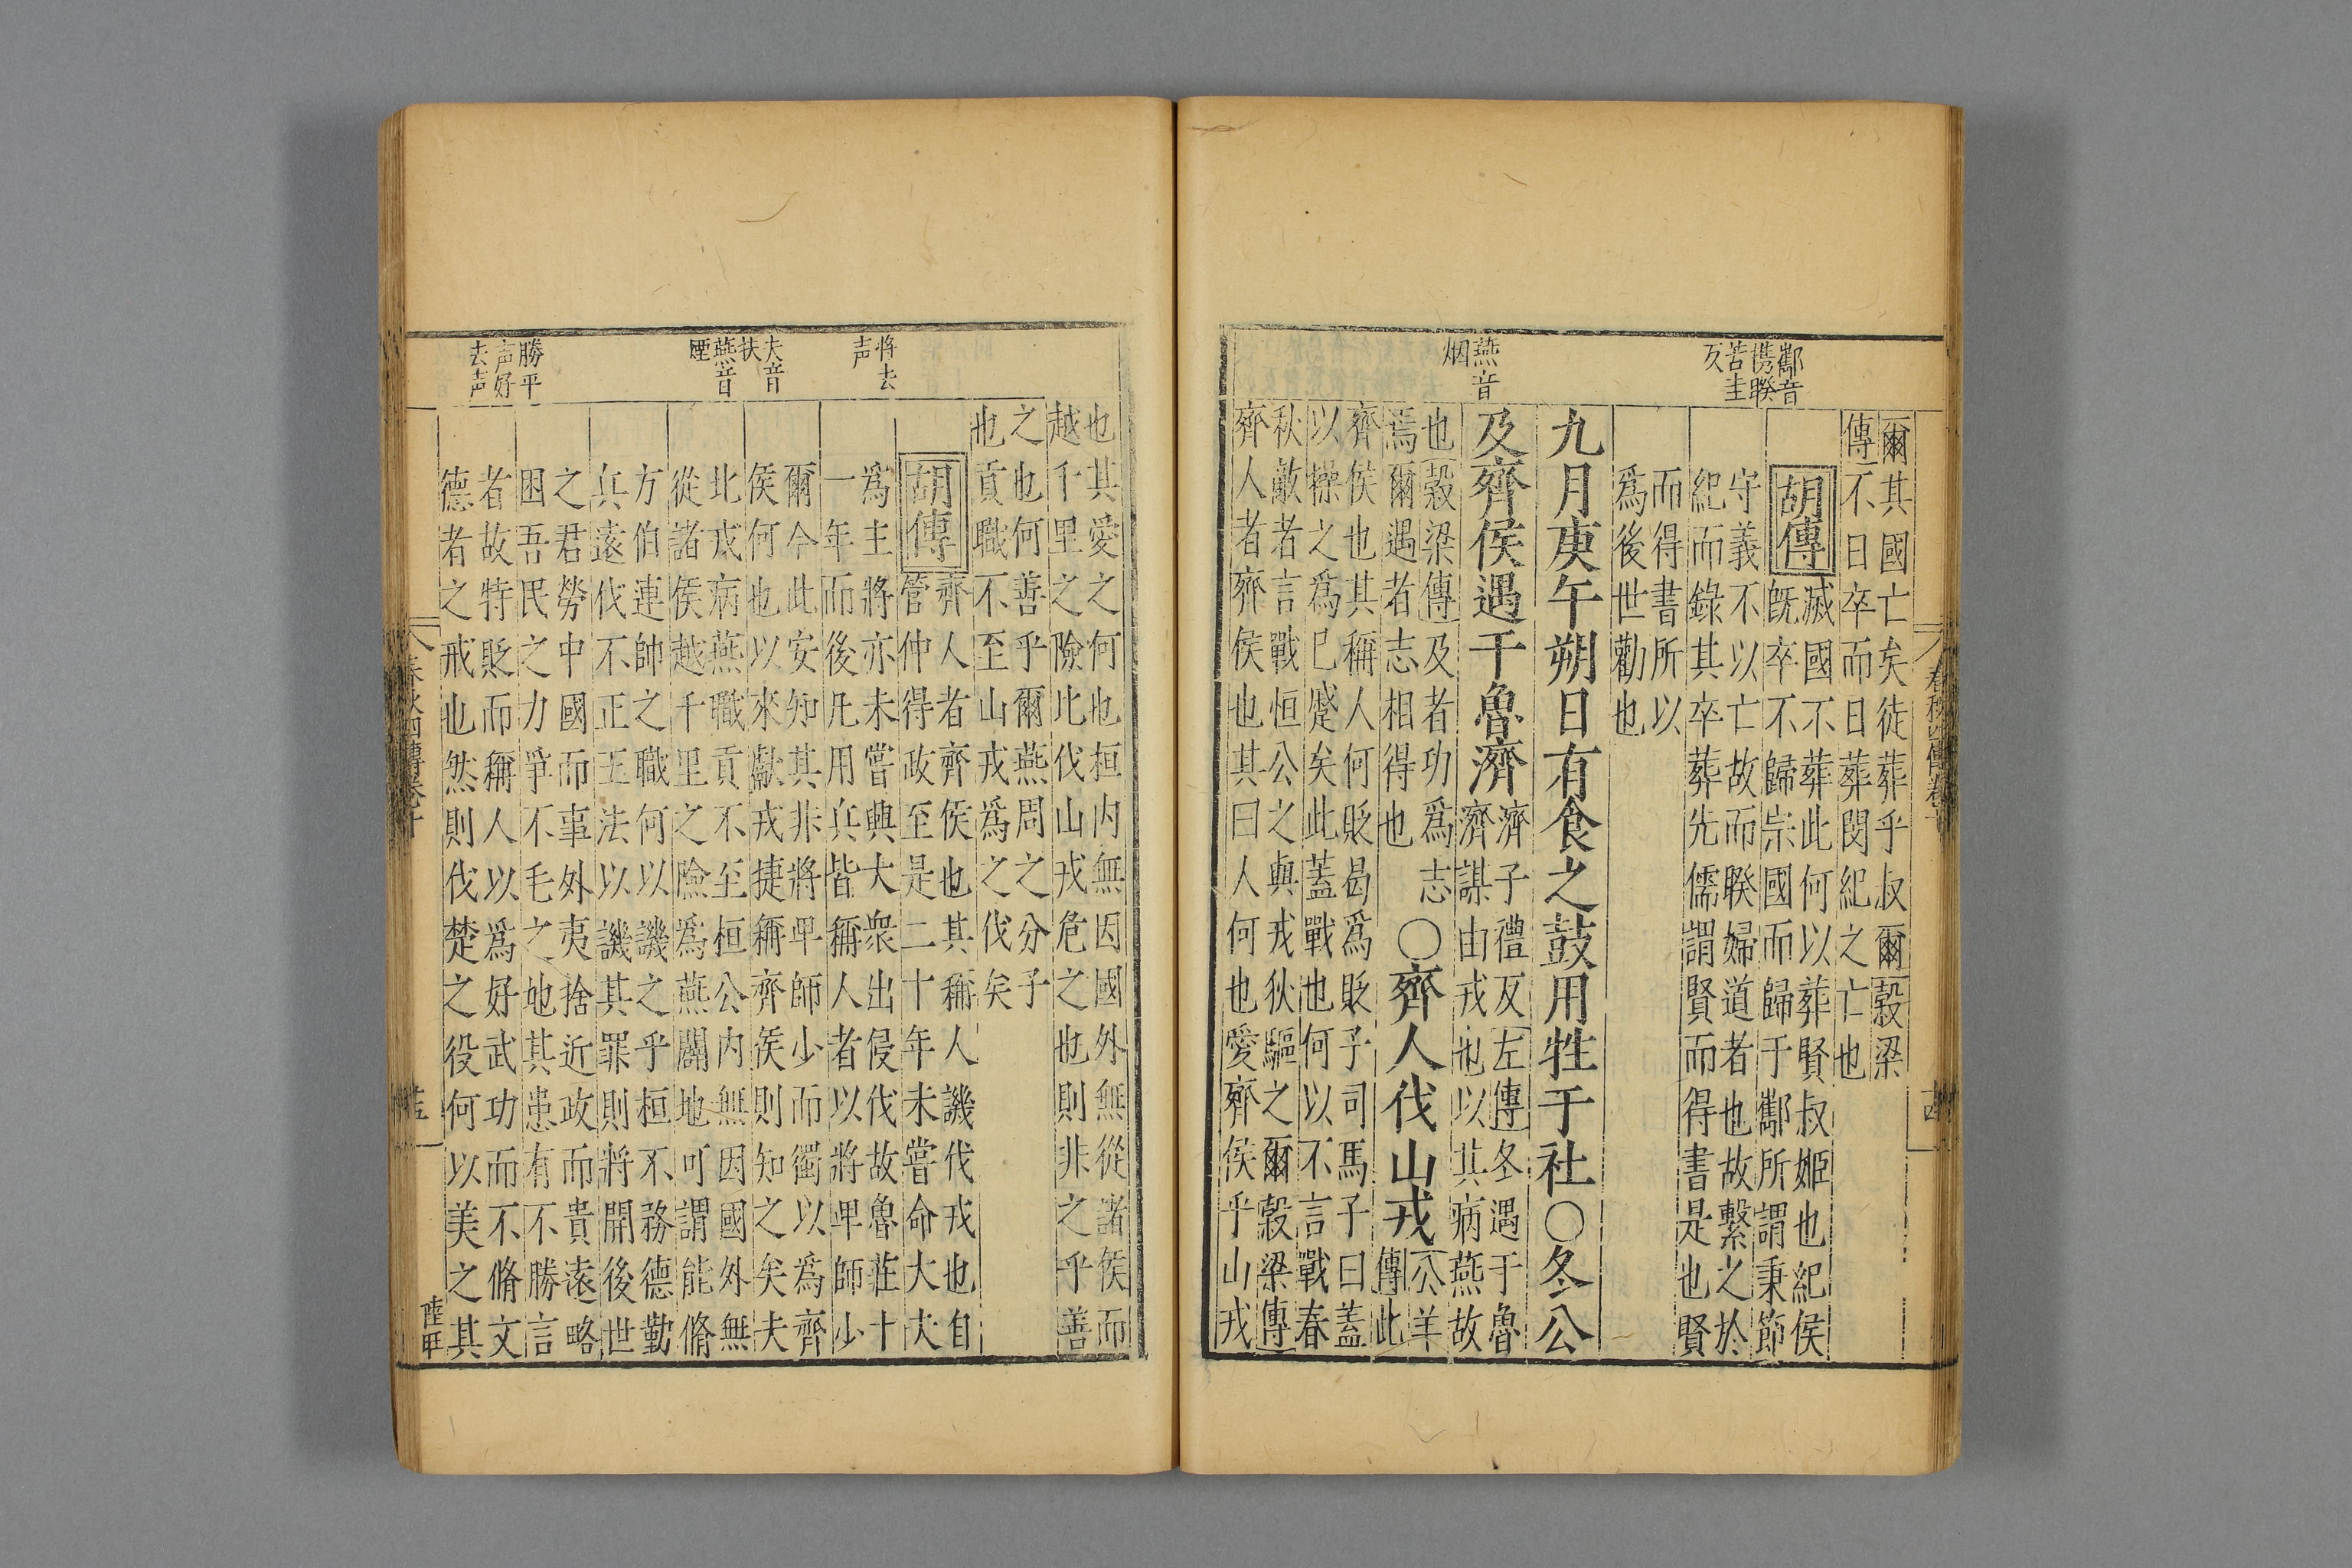 酅音
携睽
苦圭
反
燕音
烟
爾其國亡矣徒葬乎叔爾穀梁
傳不日卒而日葬閔紀之亡也
胡傳
滅國不葬此何以葬賢叔姬也紀侯
旣卒不歸宗國而歸于酅所謂秉節
守義不以亡故而睽婦道者也故繫之於
紀而錄其卒葬先儒謂賢而得書是也賢
而得書所以
爲後世勸也
九月庚午朔日有食之鼓用牲于社〇冬公
及齊侯遇于魯濟
濟子禮反左傳冬遇于魯
濟謀由戎也以其病燕故
也穀梁傳及者功爲志
焉爾遇者志相得也
〇齊人伐山戎
公羊
傳此
齊侯也其稱人何貶曷爲貶子司馬子曰蓋
以操之爲已蹙矣此蓋戰也何以不言戰春
秋敵者言戰恒公之與戎狄驅之爾穀梁傳
齊人者齊侯也其曰人何也愛齊侯乎山戎
春秋四傳卷十
十四
將去
声
夫音
扶
燕音
煙
勝平
声好
去声
也其愛之何也桓内無因國外無從諸侯而
越千里之險北伐山戎危之也則非之乎善
之也何善乎爾燕周之分子
也貢職不至山戎爲之伐矣
胡傳
齊人者齊侯也其稱人譏伐戎也自
管仲得政至是二十年未嘗命大夫
爲主將亦未嘗興大衆出侵伐故魯莊十
一年而後凡用兵皆稱人者以將卑師少
爾今此安知其非將卑師少而獨以爲齊
侯何也以來獻戎捷稱齊侯則知之矣夫
北戎病燕職貢不至桓公内無因國外無
從諸侯越千里之險爲燕闢地可謂能脩
方伯連帥之職何以譏之乎桓不務德勤
兵遠伐不正王法以譏其罪則將開後世
之君勞中國而事外夷捨近政而貴遠略
困吾民之力爭不毛之地其患有不勝言
者故特貶而稱人以爲好武功而不脩文
德者之戒也然則伐楚之役何以美之其
春秋四傳卷十
十五
陸甲